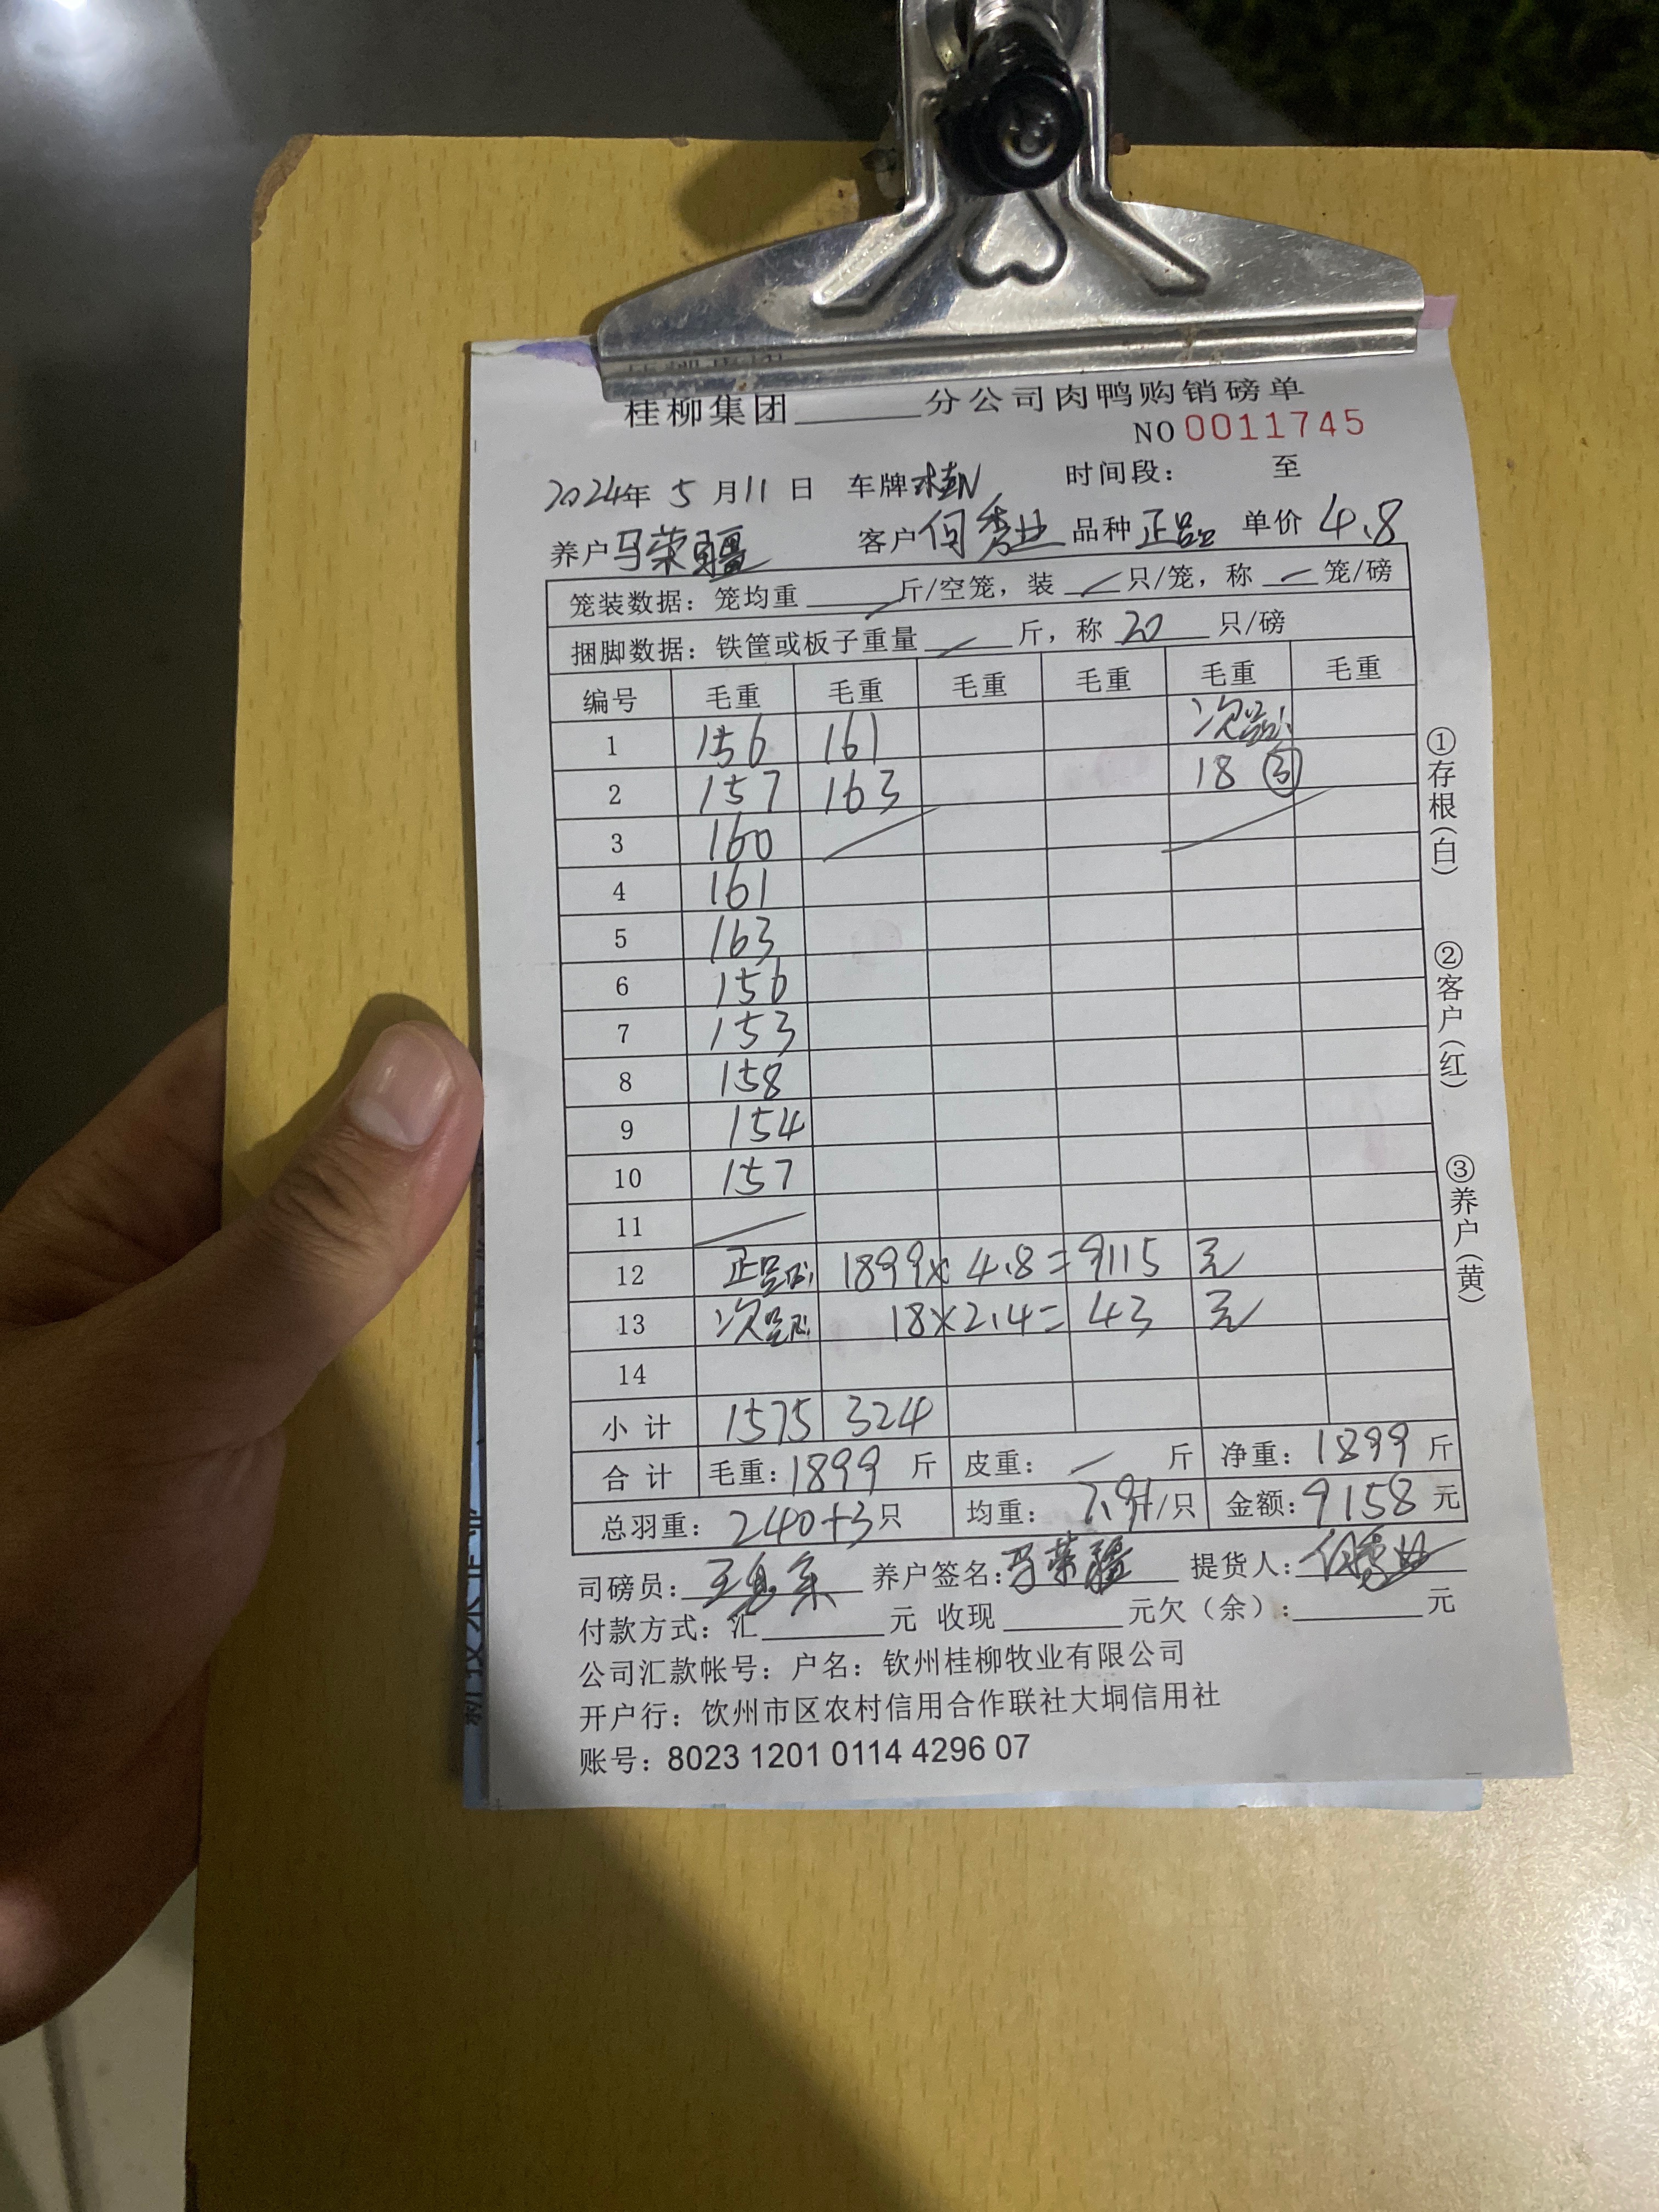 桂柳集团______分公司肉鸭购销磅单
NO 0011745
2024年 5 月 11 日 车牌 桂N 时间段： 至
养户 马荣疆 客户 何秀业 品种 正品 单价 4.8
笼装数据：笼均重 ／ 斤/空笼，装 ／ 只/笼，称 ／ 笼/磅
捆脚数据：铁筐或板子重量 ／ 斤，称 20 只/磅
编号 毛重 毛重 毛重 毛重 毛重 毛重
1 156 161 次品:
2 157 163 18 ③
3 160
4 161
5 163
6 156
7 153
8 158
9 154
10 157
11
12 正品: 1899 × 4.8 = 9115 元
13 次品: 18×2.4= 43 元
14
小计 1575 324
合计 毛重：1899 斤 皮重： ／ 斤 净重：1899 斤
总羽重：240+3只 均重：7.91/只 金额：9158 元
司磅员： 养户签名：马荣疆 提货人：何秀业
付款方式：汇______元 收现______元欠（余）：______元
公司汇款帐号：户名：钦州桂柳牧业有限公司
开户行：钦州市区农村信用合作联社大垌信用社
账号：8023 1201 0114 4296 07
①存根（白）
②客户（红）
③养户（黄）